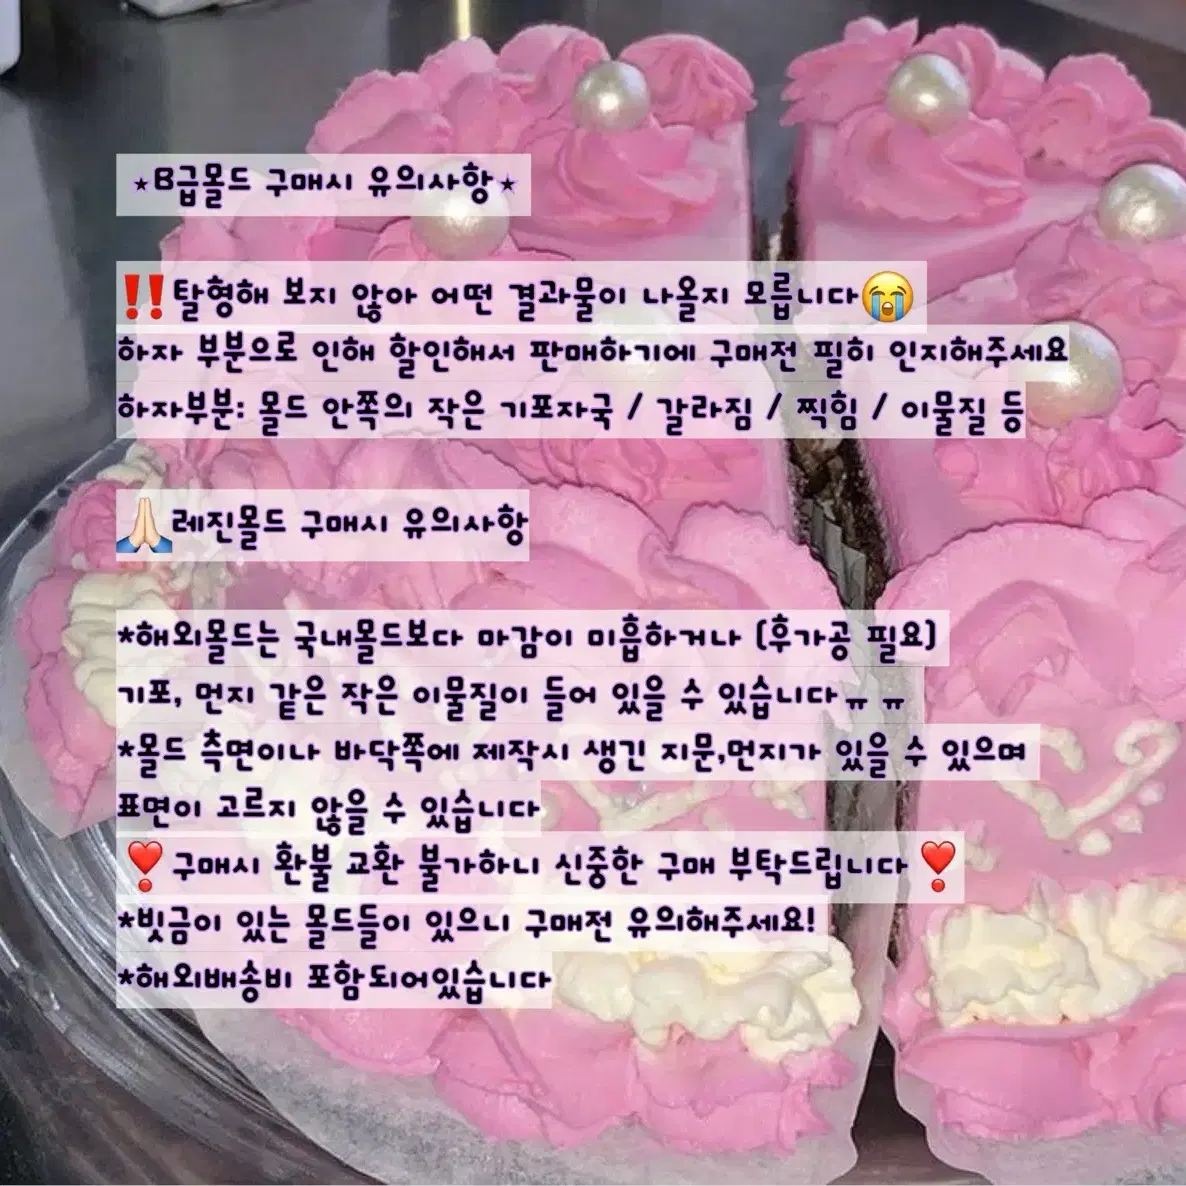 ⋆B급몰드 구매시 유의사항⋆
‼️탈형해 보지 않아 어떤 결과물이 나올지 모릅니다😭
하자 부분으로 인해 할인해서 판매하기에 구매전 필히 인지해주세요
하자부분: 몰드 안쪽의 작은 기포자국 / 갈라짐 / 찍힘 / 이물질 등
🙏🏻레진몰드 구매시 유의사항
*해외몰드는 국내몰드보다 마감이 미흡하거나 (후가공 필요)
기포, 먼지 같은 작은 이물질이 들어 있을 수 있습니다ㅠㅠ
*몰드 측면이나 바닥쪽에 제작시 생긴 지문,먼지가 있을 수 있으며
표면이 고르지 않을 수 있습니다
❣️구매시 환불 교환 불가하니 신중한 구매 부탁드립니다❣️
*빗금이 있는 몰드들이 있으니 구매전 유의해주세요!
*해외배송비 포함되어있습니다